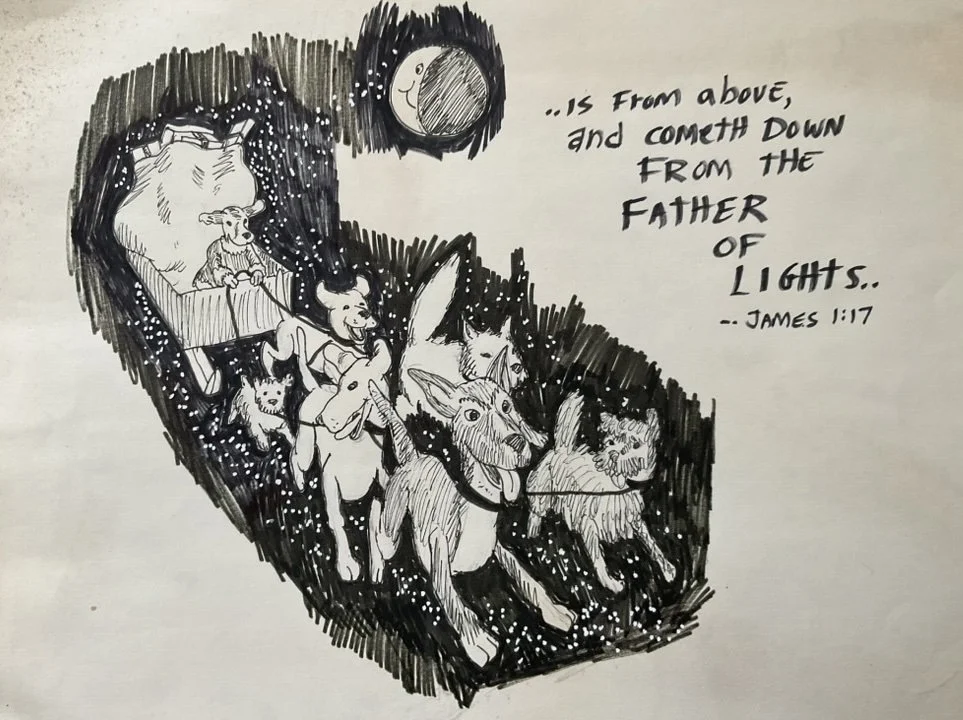 ..is From above,
and cometh Down
From the
Father
of
Lights..
-- James 1:17